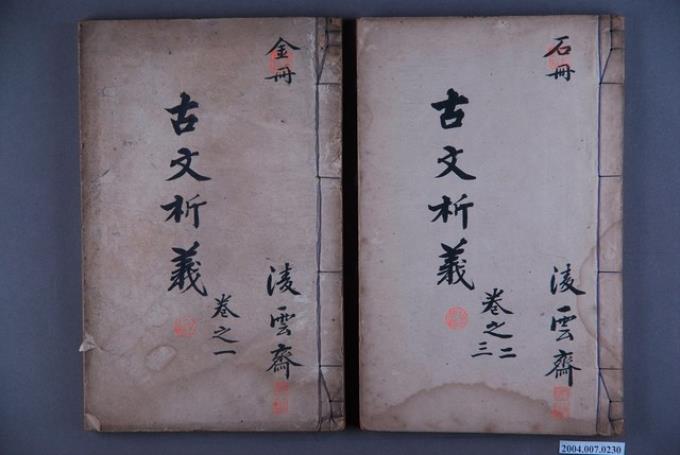 金冊
古文析義
卷之一
淩雲齋
石冊
古文析義
卷之二三
淩雲齋
2004.007.0230